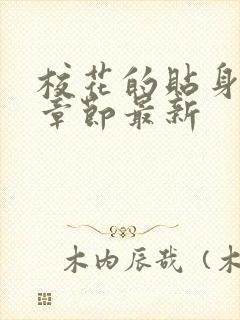 校花的貼身
章節最新
木内辰哉（木